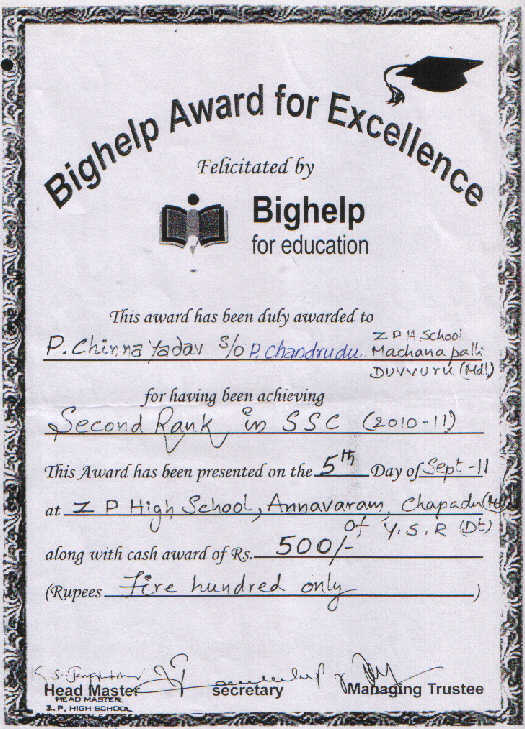 Bighelp Award for Excellence
Felicitated by
Bighelp
for education
This award has been duly awarded to
P. Chinna Yadav S/o P. Chandrudu. Z P H School
Machanapalli
Duvvuru (Mdl)
for having been achieving
Second Rank in SSC (2010-11)
This Award has been presented on the 5th Day of Sept-11
at Z P High School, Annavaram, Chapadu (Md)
of Y.S.R (Dt)
along with cash award of Rs. 500/-
(Rupees Five hundred only )
Head Master secretary Managing Trustee
HEAD MASTER
Z. P. HIGH SCHOOL